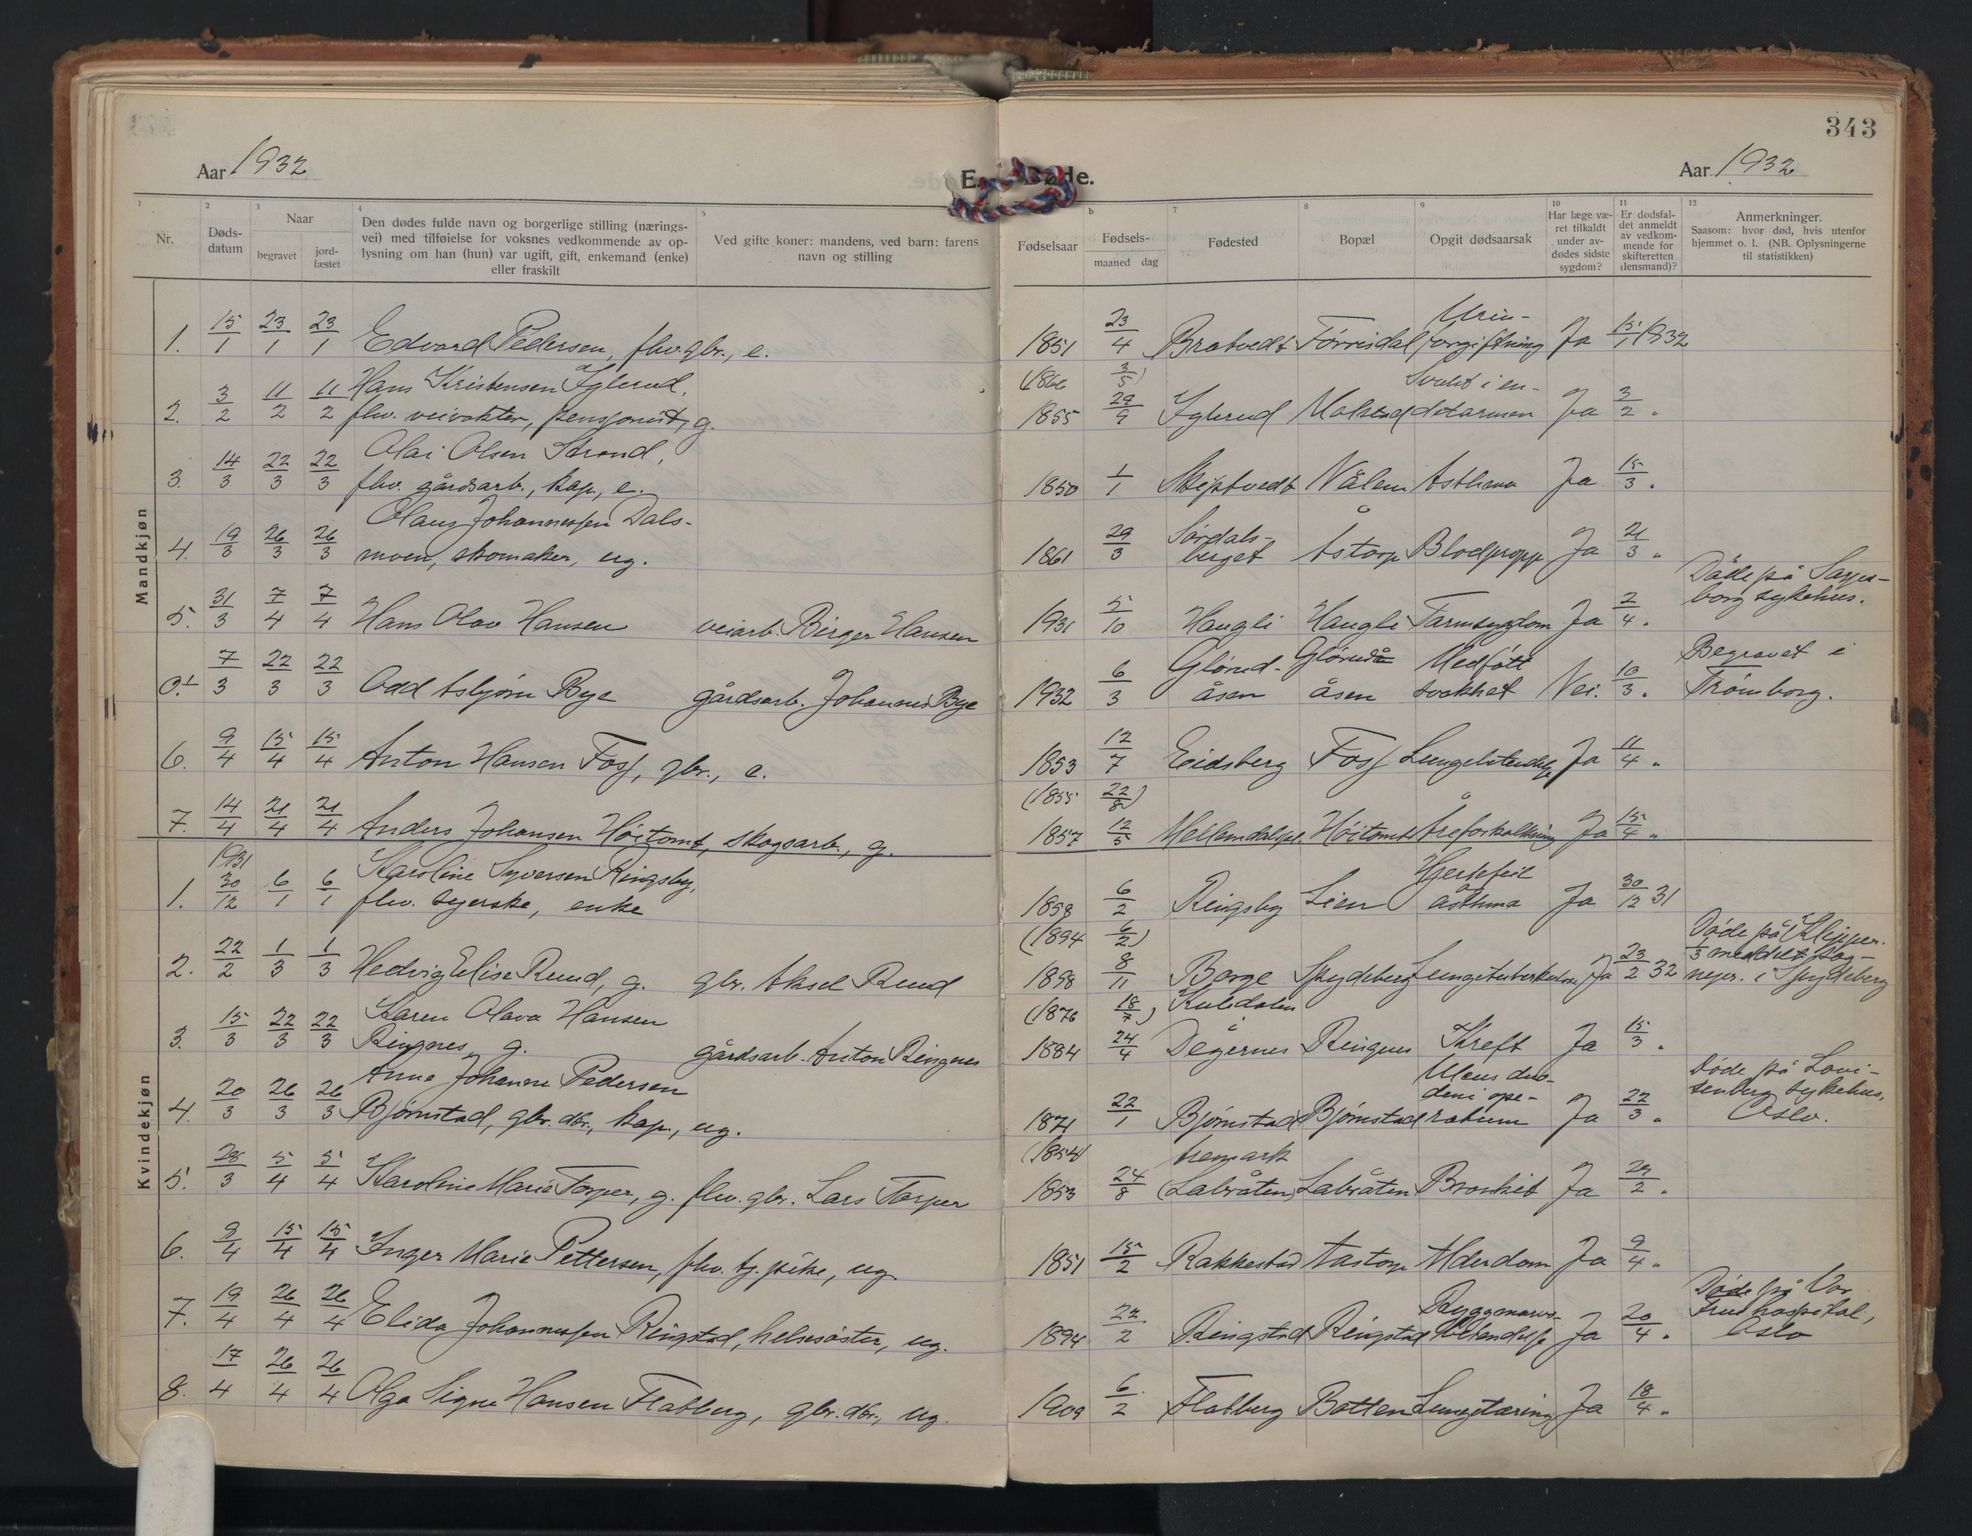 343
Aar 1932
E. Døde.
Aar 1932
1 2 3 4 5 6 7 8 9 10 11 12
Nr.
Døds-
datum
Naar
begravet
jord-
fæstet
Den dødes fulde navn og borgerlige stilling (nærings-
vei) med tilføielse for voksnes vedkommende av op-
lysning om han (hun) var ugift, gift, enkemand (enke)
eller fraskilt
Ved gifte koner: mandens, ved barn: farens
navn og stilling
Fødselsaar
Fødsels-
maaned dag
Fødested
Bopæl
Opgit dødsaarsak
Har læge væ-
ret tilkaldt
under av-
dødes sidste
sygdom?
Er dødsfal-
det anmeldt
av vedkom-
mende for
skifteretten
(lensmand)?
Anmerkninger.
Saasom: hvor død, hvis utenfor
hjemmet o. l. (NB. Oplysningerne
til statistikken)
Mandkjøn
Urin-
1. 15/1 23/1 23/1 Edvard Pedersen, fhv. gbr., e. 1851 23/4 Bratvedt Tørrisdal forgiftning Ja 15/1 1932
Hans Kristensen Iglerud, (1866 3/5) Svulst i en-
2. 3/2 11/2 11/2 fhv. veivokter, pensjonist, g. 1855 29/9 Iglerud detarmen Ja 3/2 "
Olai Olsen Strand,
3. 14/3 22/3 22/3 fhv. gårdsarb., kap., e. 1850 1/1 Skiptvedt Nålem Asthma Ja 15/3 "
Olaus Johannessen Dals- Sørdals-
4. 19/3 26/3 26/3 moen, skomaker, ug. 1861 29/3 berget Åstorp Blodpropp Ja 21/3 "
Døde på Sarps-
borg sykehus.
5. 31/3 7/4 7/4 Hans Olav Hansen veiarb. Birger Hansen 1931 5/10 Haugli Haugli Tarmsygdom Ja 2/4 "
Glørud- Glørud Medfött Begravet i
0.1 7/3 22/3 22/3 Odd Asbjørn Bye gårdsarb. Johannes Bye 1932 6/3 åsen åsen svakhet Nei. 10/3 " Trømborg.
6. 9/4 15/4 15/4 Anton Hansen Foss, gbr., e. 1853 12/7 Eidsberg Foss Lungebetendelse Ja 11/4 "
(1855 22/8)
7. 14/4 21/4 21/4 Anders Johansen Höitomt, skogsarb., g. 1857 12/5 Höitomt Åreforkalkning Ja 15/4 "
Kvindekjøn
1931 Karoline Syversen Ringsby, Hjertefeil
1. 30/12 6/1 6/1 fhv. syerske, enke 1858 6/2 Ringsby Lien asthma Ja 30/12 31
(1894 6/2) Døde på
2. 22/2 1/3 1/3 Hedvig Elise Rud, g. gbr. Aksel Rud 1898 8/11 Borge Spydeberg Lungetuberkulose Ja 23/2 32 i Spydeberg
Karen Olava Hansen (1876 18/7) Kuledalen
3. 15/3 22/3 22/3 Ringnes, g. gårdsarb. Anton Ringnes 1884 24/4 Degernes Ringnes Kreft Ja 15/3 "
Anna Johanne Pedersen Ulcus duo- Døde på Lovi-
deni ope- senberg sykehus,
4. 20/3 26/3 26/3 Bjørnstad, gbr. dtr., kap., ug. 1871 22/1 Bjørnstad Bjørnstad ratum Ja 22/3 " Oslo.
(1854) Aremark
5. 28/3 5/4 5/4 Karoline Marie Torper, g. fhv. gbr. Lars Torper 1853 24/8 (Labråten) Labråten Bronkit Ja 29/2 "
6. 9/4 15/4 15/4 Inger Marie Pettersen, fhv. tj. pike, ug. 1851 15/2 Rakkestad Aastorp Alderdom Ja 9/4 "
Ryggmarvs- Døde på Vor
Frue hospital,
7. 19/4 26/4 26/4 Elida Johannessen Ringstad, helsesøster, ug. 1894 22/2 Ringstad Ringstad betendelse Ja 20/4 " Oslo
8. 17/4 26/4 26/4 Olga Signe Hansen Flatberg, gbr. dtr., ug. 1909 6/2 Flatberg Botten Lungetæring Ja 18/4 "